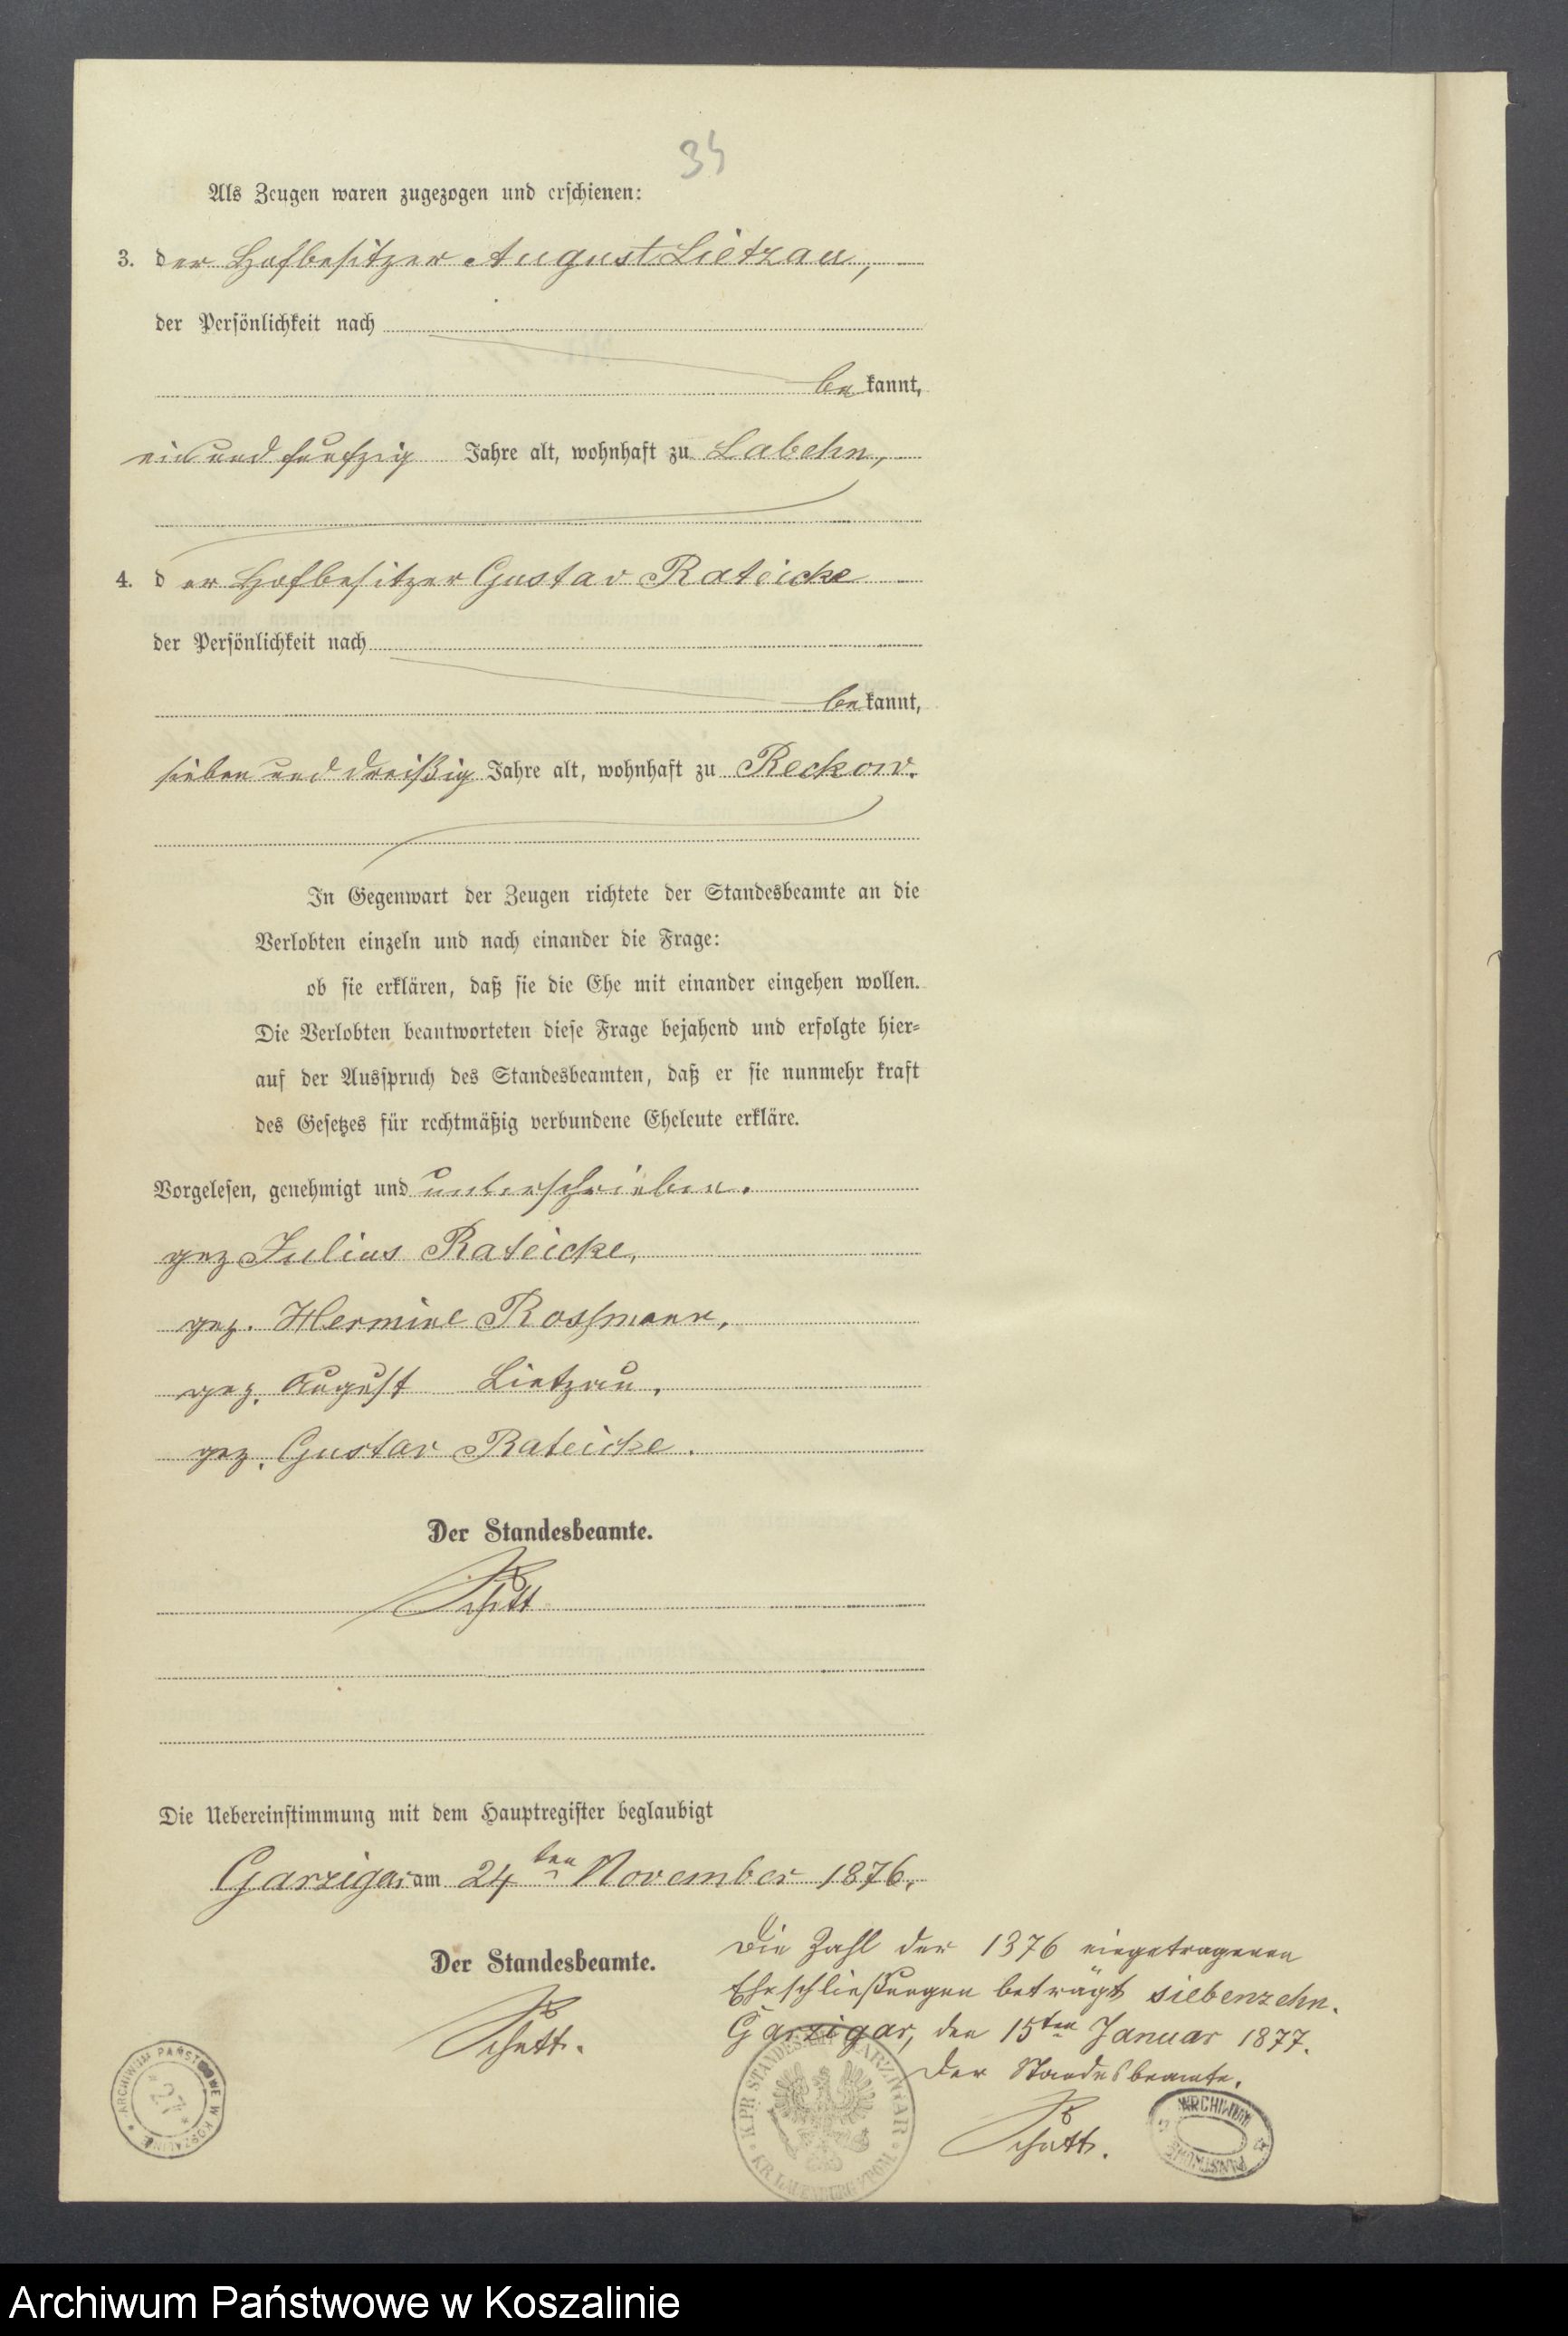 34
Als Zeugen waren zugezogen und erschienen:
3. der Hofbesitzer August Lietzau,
der Persönlichkeit nach
bekannt,
ein und funfzig Jahre alt, wohnhaft zu Labehn,
4. der Hofbesitzer Gustav Rateicke
der Persönlichkeit nach
bekannt,
sieben und dreißig Jahre alt, wohnhaft zu Reckow.
In Gegenwart der Zeugen richtete der Standesbeamte an die
Verlobten einzeln und nach einander die Frage:
ob sie erklären, daß sie die Ehe mit einander eingehen wollen.
Die Verlobten beantworteten diese Frage bejahend und erfolgte hier=
auf der Ausspruch des Standesbeamten, daß er sie nunmehr kraft
des Gesetzes für rechtmäßig verbundene Eheleute erkläre.
Vorgelesen, genehmigt und unterschrieben.
gez Julius Rateicke,
gez. Hermine Rossmann,
gez. August Lietzau.
gez. Gustav Rateicke.
Der Standesbeamte.
Die Uebereinstimmung mit dem Hauptregister beglaubigt
Garzigar am 24ten November 1876.
Der Standesbeamte.
Die Zahl der 1876 eingetragenen
Eheschließungen beträgt siebenzehn.
Garzigar, den 15ten Januar 1877.
Der Standesbeamte.
ARCHIWUM PAŃSTWOWE W KOSZALINIE
27
K.PR. STANDESAMT GARZIGAR
KR. LAUENBURG I/POM.
ARCHIWUM
PAŃSTWOWE
Archiwum Państwowe w Koszalinie